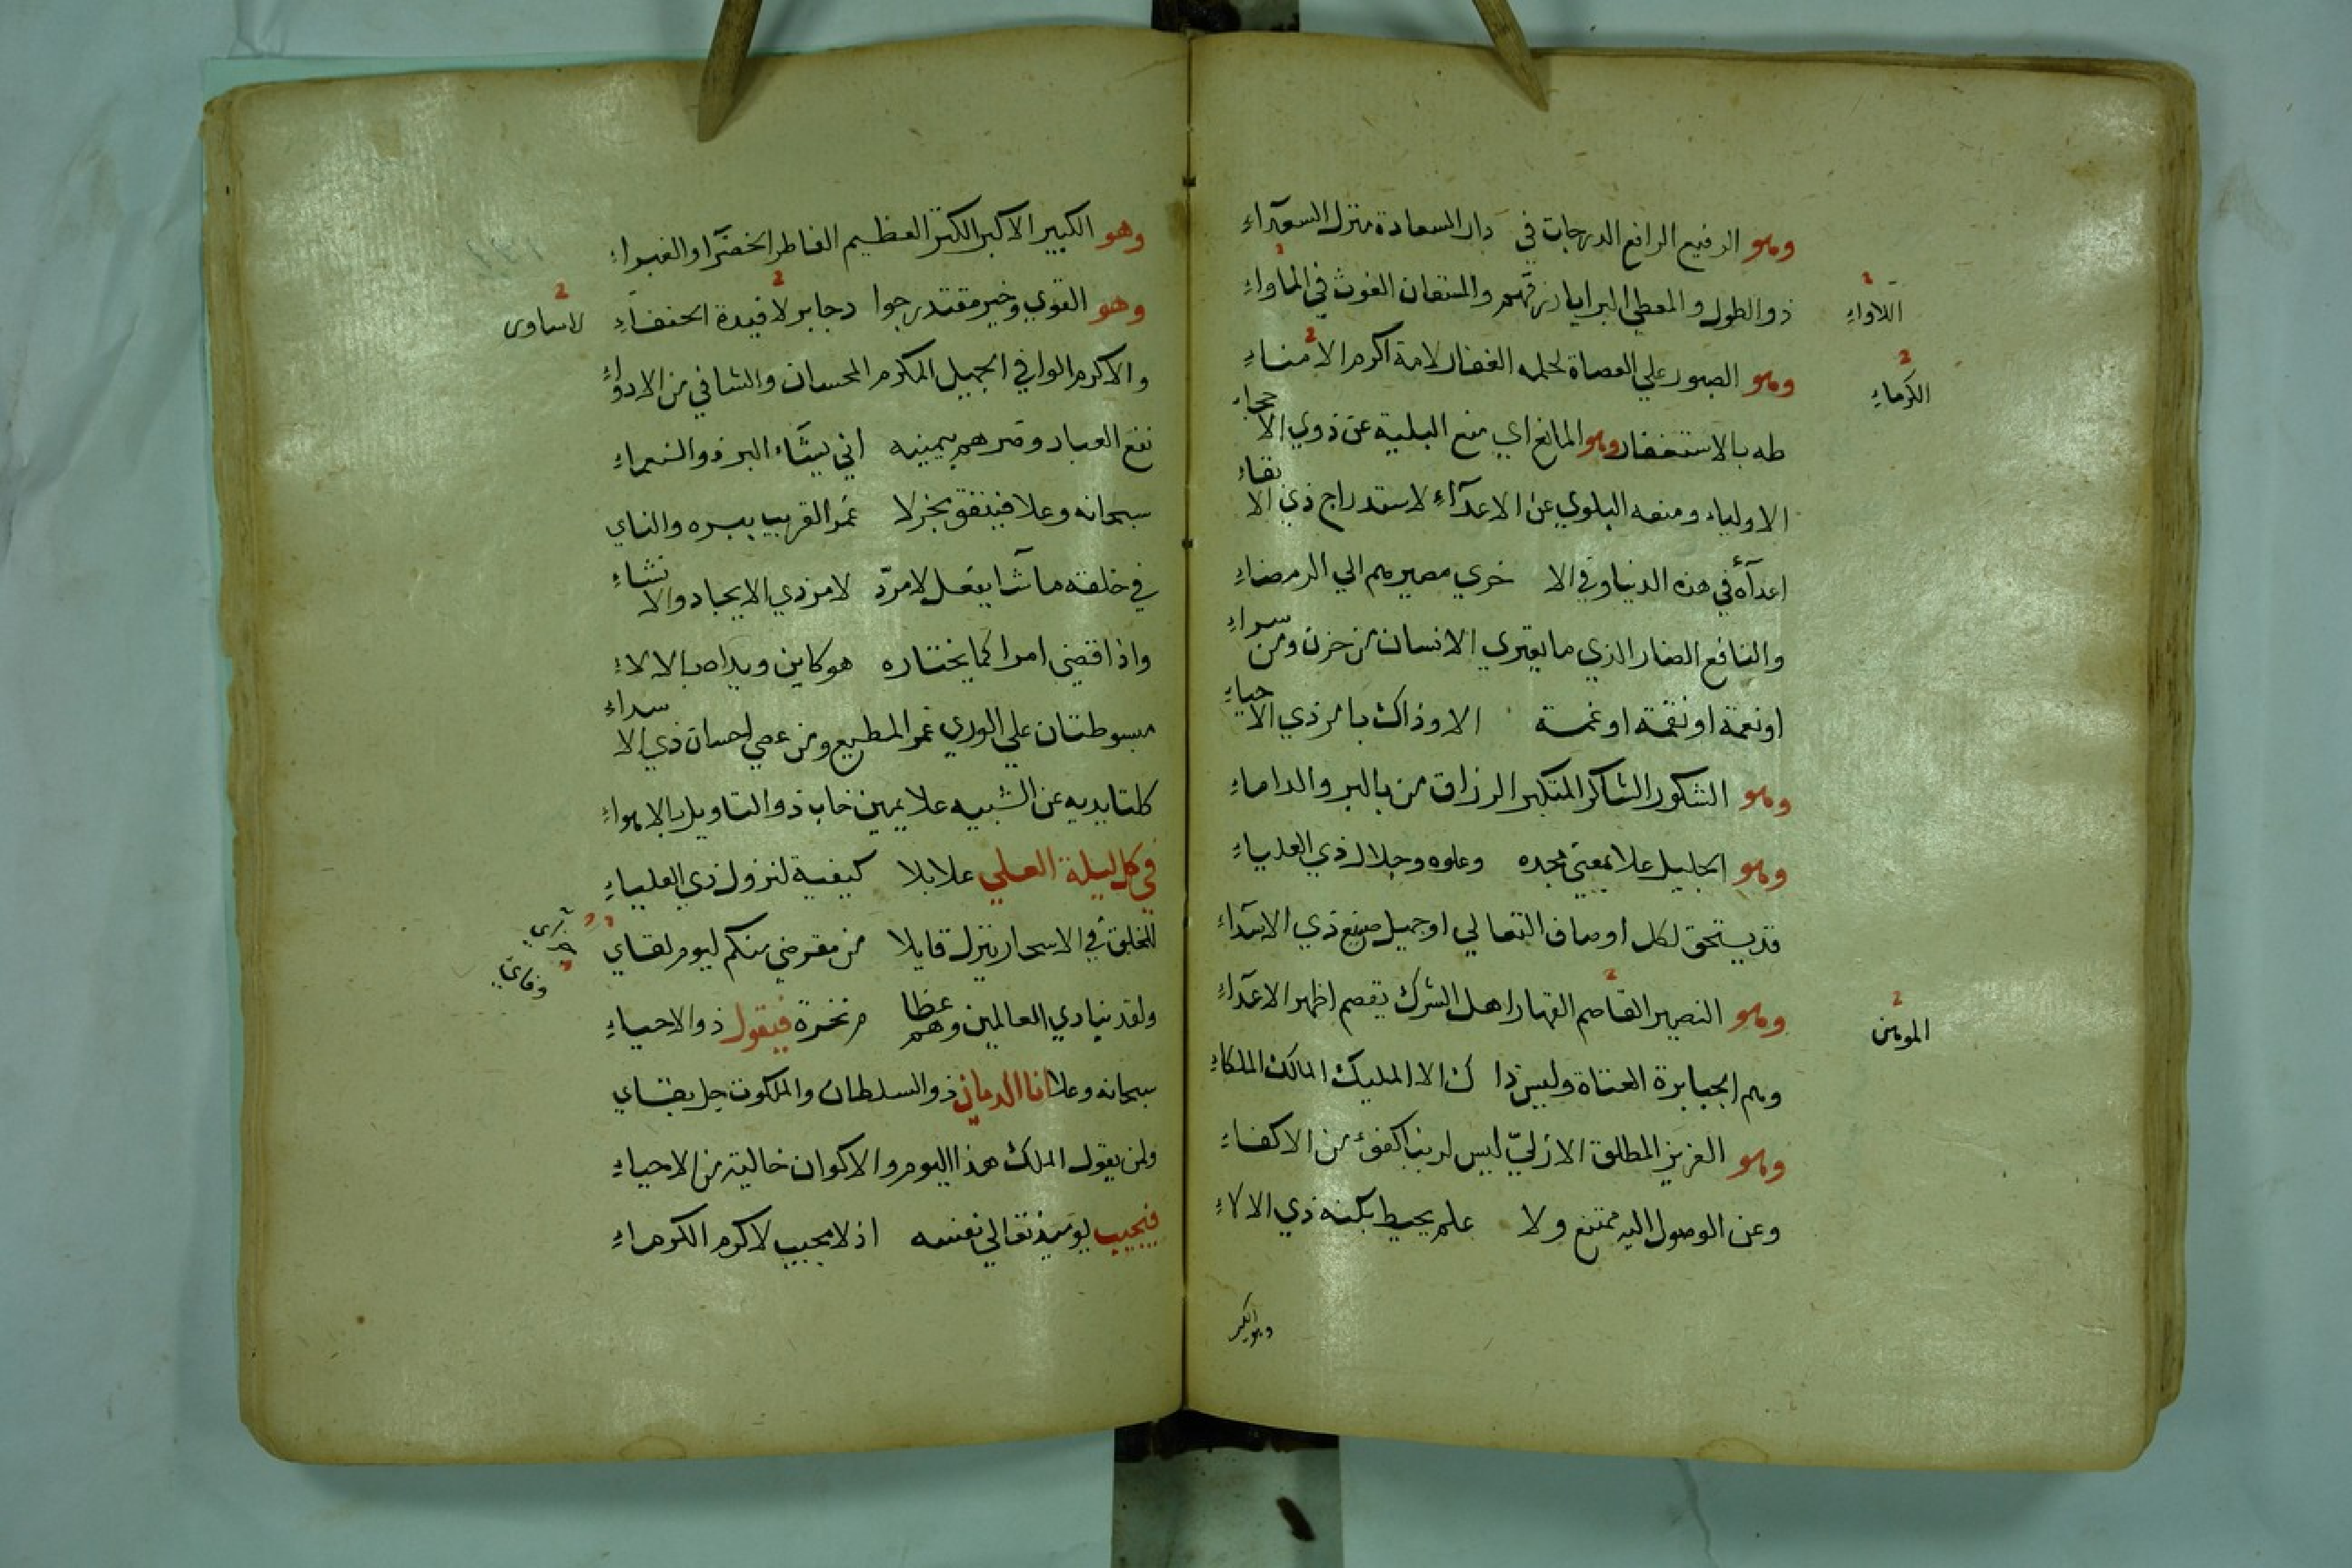 وهو الرفيع الرافع الدرجات في دار السعادة منزل السعدآء
ذو الطول والمعطي البرايا رزقهم والمستعان الغوث في الماواء
اللاواء
وهو الصبور علي العصاة لحلمه الغفار لامة اكرم الامناء
الكرماء
طه بالاستغفار وهو المانع اي منع البلية عن ذوي الا حجاء
الاولياء ومنعه البلوي عن الاعدآء لاستدراج ذي الا تقاء
اعدآه في هذه الدنيا وفي الا خري مصيرهم الي الرمضاء
والنافع الضار الذي ما يعتري الانسان من حزن ومن سراء
او نعمة او نقمة او غمة الا وذاك بامر ذي الا حياء
وهو الشكور الشاكر المتكبر الرزاق من بالبر والداماء
وهو الجليل علا بمعني مجده وعلوه وجلال ذي العلياء
قد يستحق لكل اوصاف التعالي او جميل صنع ذي الاسدآء
وهو النصير القاصم القهار اهل الشرك يقصم اظهر الاعدآء
المومن
وهم الجبابرة العتاة وليس ذا ك الا المليك المالك الملكاء
وهو العزيز المطلق الازليّ ليس لربنا كفؤ من الاكفاء
وعن الوصول اليه ممتنع ولا علم يحيط بكنه ذي الالاء
وهو الكبير
وهو الكبير الاكبر الكبر العظيم الفاطر الخضرآ والغبراء
وهو القوي وخير مقتدر جوا د جابر لافيدة الحنفاء
لاساوى
والاكرم الوافي الجميل المكرم المحسان والشافي من الادواء
نفع العباد وضرهم بيمينه اني يشآء البر ذو النعماء
سبحانه وعلا فينفق بخزلا غمر القريب ببره والناي
في خلقه ما شآ يفعل لا مردّ لامر ذي الايجاد والا نشاء
واذا قضي امرا كما يختاره هو كاين ويداه بالالاء
مبسوطتان علي الوري غمر المطيع ومن عصي لحسان ذي الا سداء
كلتا يديه عن الشبيه علا يمين خاب ذو التاويل بالاهواء
في كل ليلة العلي علا بلا كيفية لنزول ذي العلياء
للخلق في الاسحار ينزل قايلا من مقرضي منكم ليوم لقاي
وفاي
ولقد ينادي العالمين وهم عظا م نخرة فيقول ذو الاحياء
سبحانه وعلا انا الديان ذو السلطان والملكوت جل بقاي
ولمن يقول الملك هذا اليوم والاكوان خالية من الاحياء
فيجيب يوميذ تعالي نفسه اذ لا مجيب لاكرم الكرماء